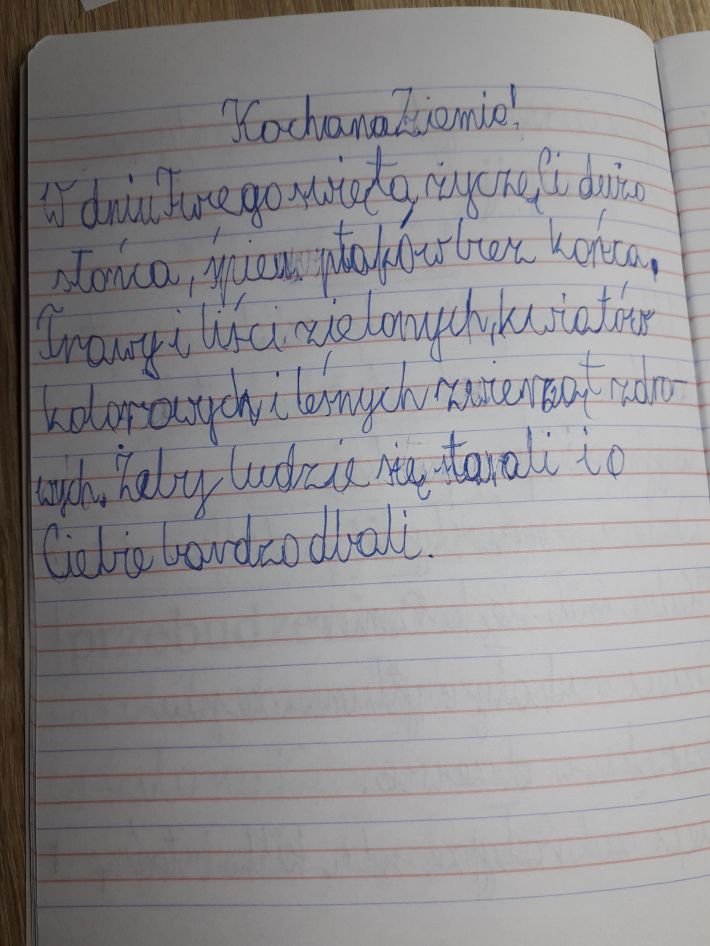 Kochana Ziemio!
W dniu Twego święta, życzę Ci dużo
słońca, śpiew ptaków bez końca.
Trawy i liści zielonych, kwiatów
kolorowych i leśnych zwierząt zdro-
wych. Żeby ludzie się starali i o
Ciebie bardzo dbali.